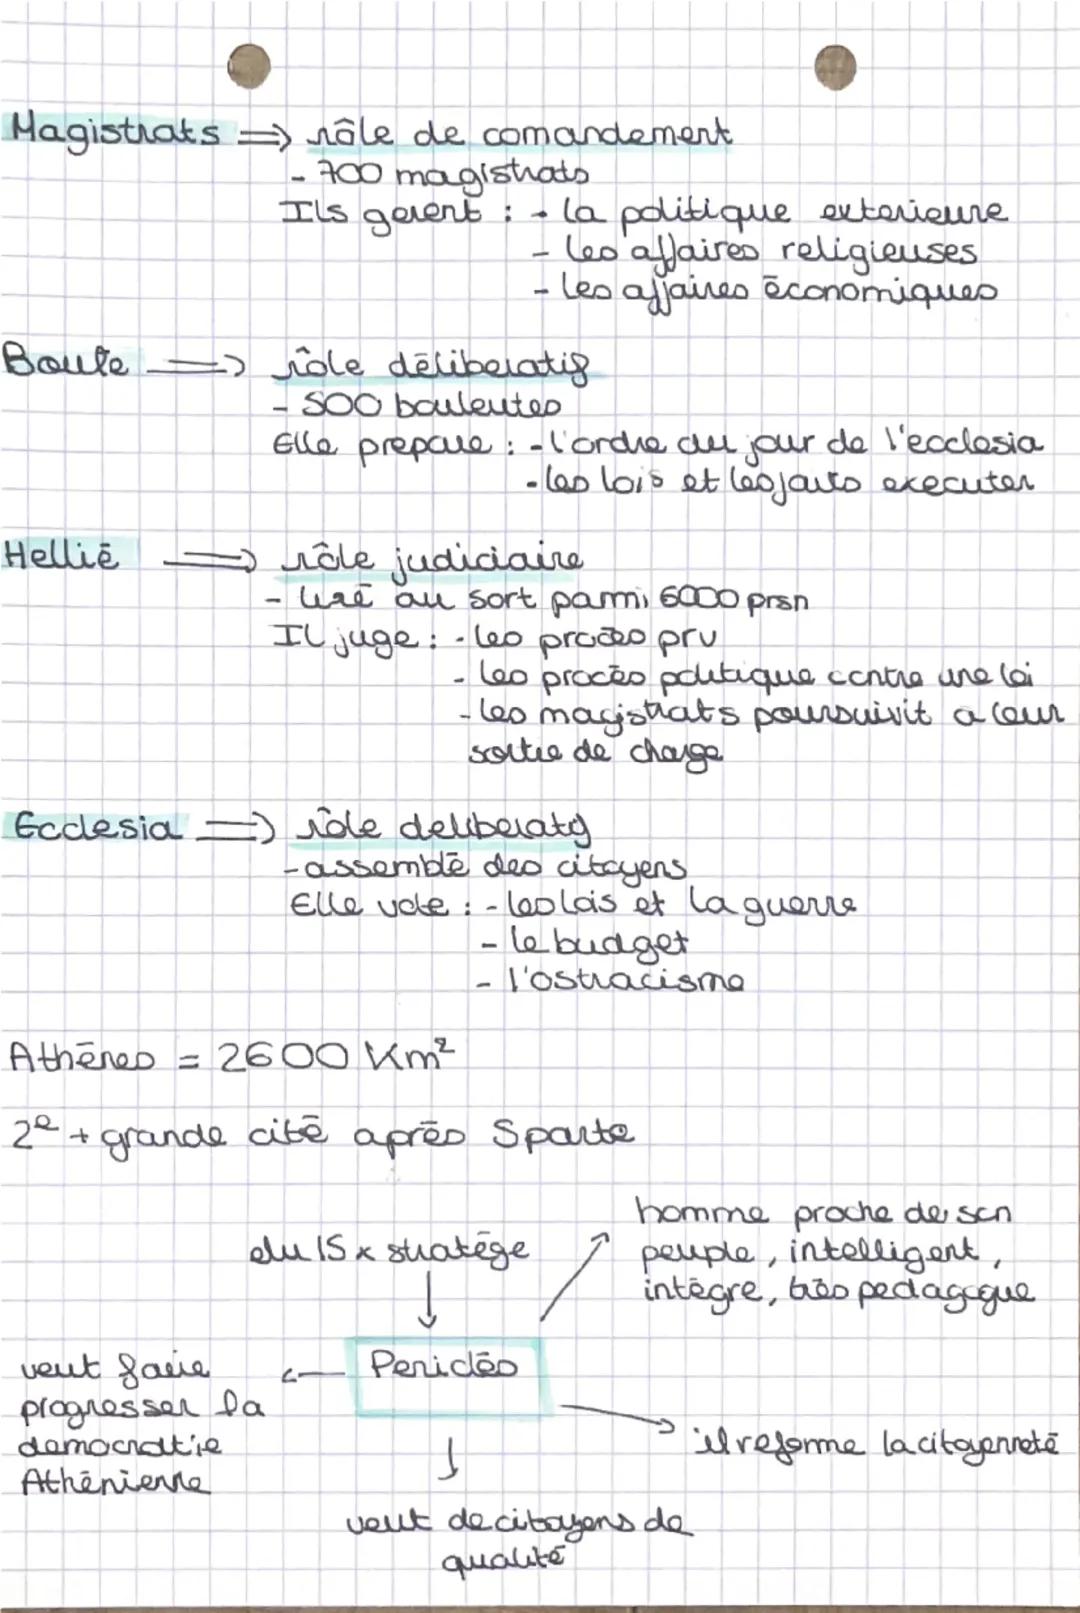 Magistrats => rôle de comandement
- 700 magistrats
Ils gerent : - la politique exterieure
- les affaires religieuses
- les affaires économiques
Boule => rôle déliberatif
- 500 bouleutes
Elle prepare : - l'ordre du jour de l'ecclesia
- les lois et les faits executer
Hellié => rôle judiciaire
- tiré au sort parmi 6000 prsn
Il juge : - les procès prv
- les procès politique contre une loi
- les magistrats poursuivit a leur
sortie de charge
Ecclesia => rôle deliberatif
- assemblé des citoyens
Elle vote : - les lois et la guerre
- le budget
- l'ostracisme
Athènes = 2600 Km²
2e + grande cité après Sparte
homme proche de son
peuple, intelligent,
intègre, très pedagogue
elu 15 x stratège
Periclès
veut faire
progresser la
democratie
Athénienne
il reforme la citoyenneté
veut de citoyens de
qualité